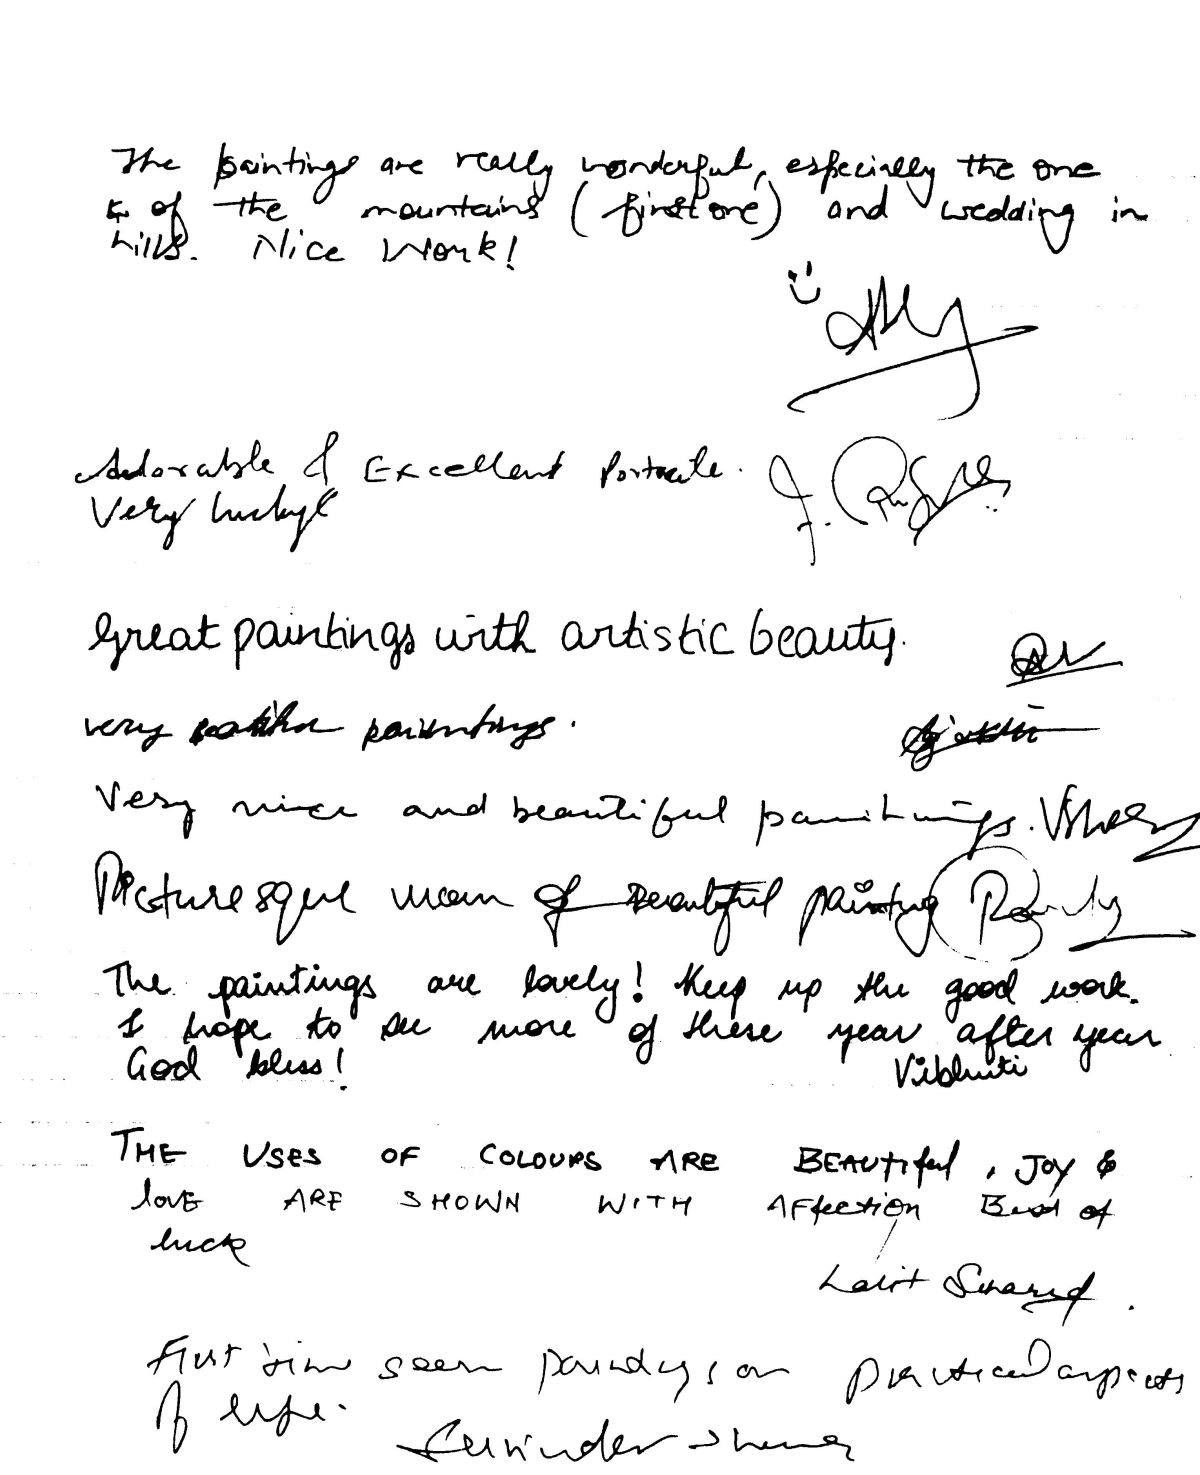 The paintings are really wonderful, especially the one
& of the mountains (first one) and wedding in
hills. Nice Work!
Adorable & Excellent Portraite.
Very lucky
Great paintings with artistic beauty.
very paintings.
Very nice and beautiful paintings.
Picturesque of beautiful painting
The paintings are lovely! Keep up the good work.
I hope to see more of these year after year
God bless!
Vibhuti
THE USES OF COLOURS ARE BEAUTIFUL, JOY &
love ARE SHOWN WITH AFFECTION Best of
luck
Lalit
First time seen paintings on practical aspects
of life.